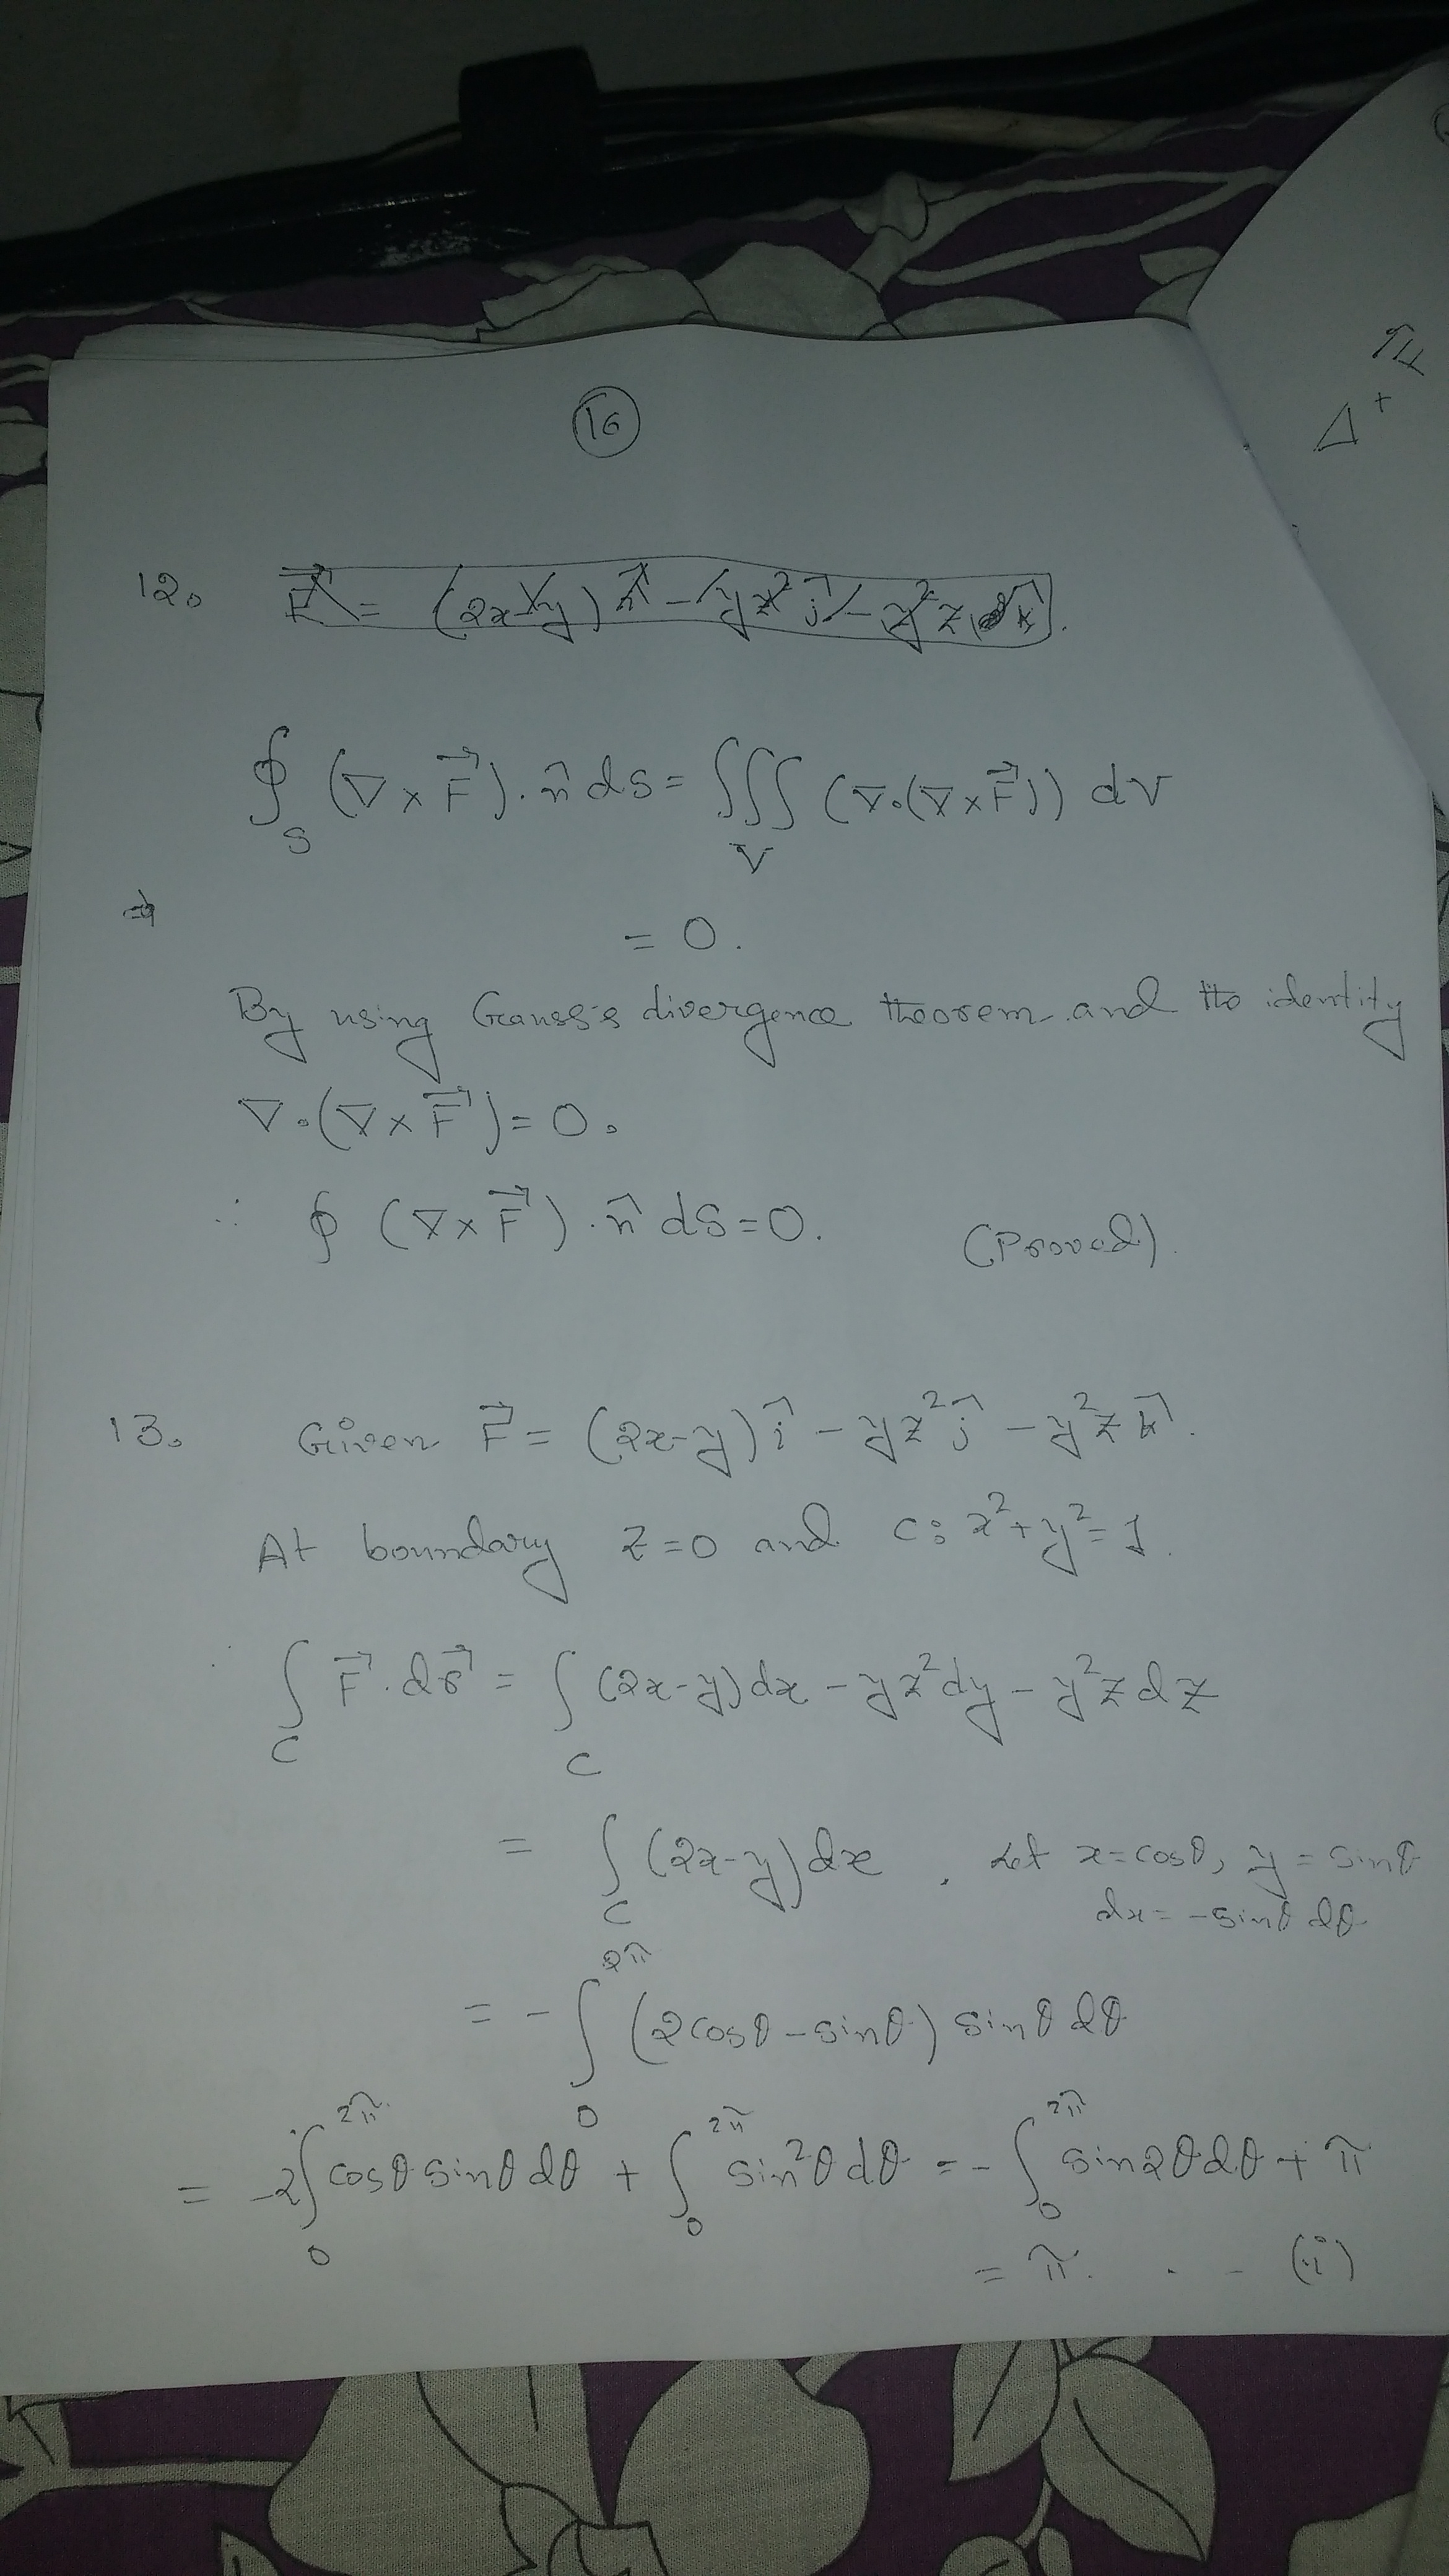 16
12. F⃗ = (2x-y) n̂ - yz² ĵ - y²z k̂.
∮_S (∇×F⃗).n̂ ds = ∭_V (∇.(∇×F⃗)) dV
⇒
= 0.
By using Gauss's divergence theorem and the identity
∇.(∇×F⃗) = 0.
∴ ∮ (∇×F⃗).n̂ ds = 0. (Proved).
13. Given F⃗ = (2x-y)î - yz²ĵ - y²z k̂.
At boundary z=0 and C: x²+y²=1.
∴ ∫_C F⃗.dr⃗ = ∫_C (2x-y)dx - yz²dy - y²zdz
= ∫_C (2x-y)dx . Let x=cosθ, y=sinθ
dx = -sinθ dθ
= - ∫_0^{2π} (2cosθ - sinθ) sinθ dθ
= -2∫_0^{2π} cosθ sinθ dθ + ∫_0^{2π} sin²θ dθ = - ∫_0^{2π} sin2θ dθ + π
= π. . - (i)
π
Δ +